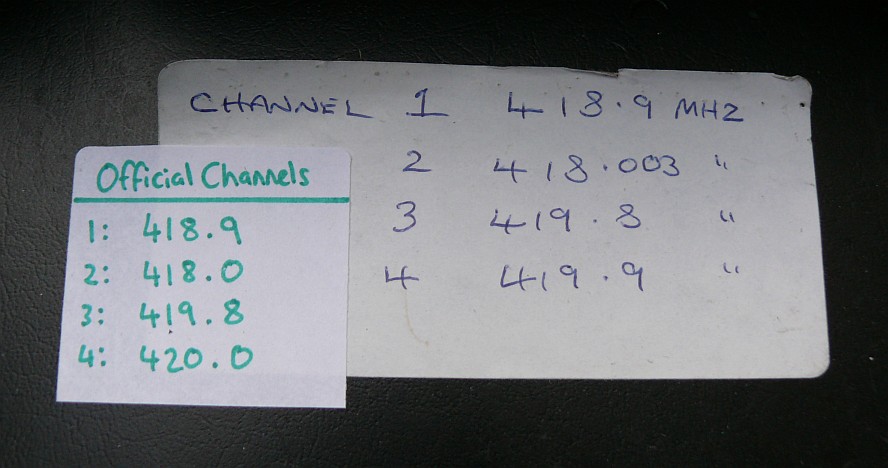 CHANNEL 1 418.9 MHZ
2 418.003 "
3 419.8 "
4 419.9 "
Official Channels
1: 418.9
2: 418.0
3: 419.8
4: 420.0